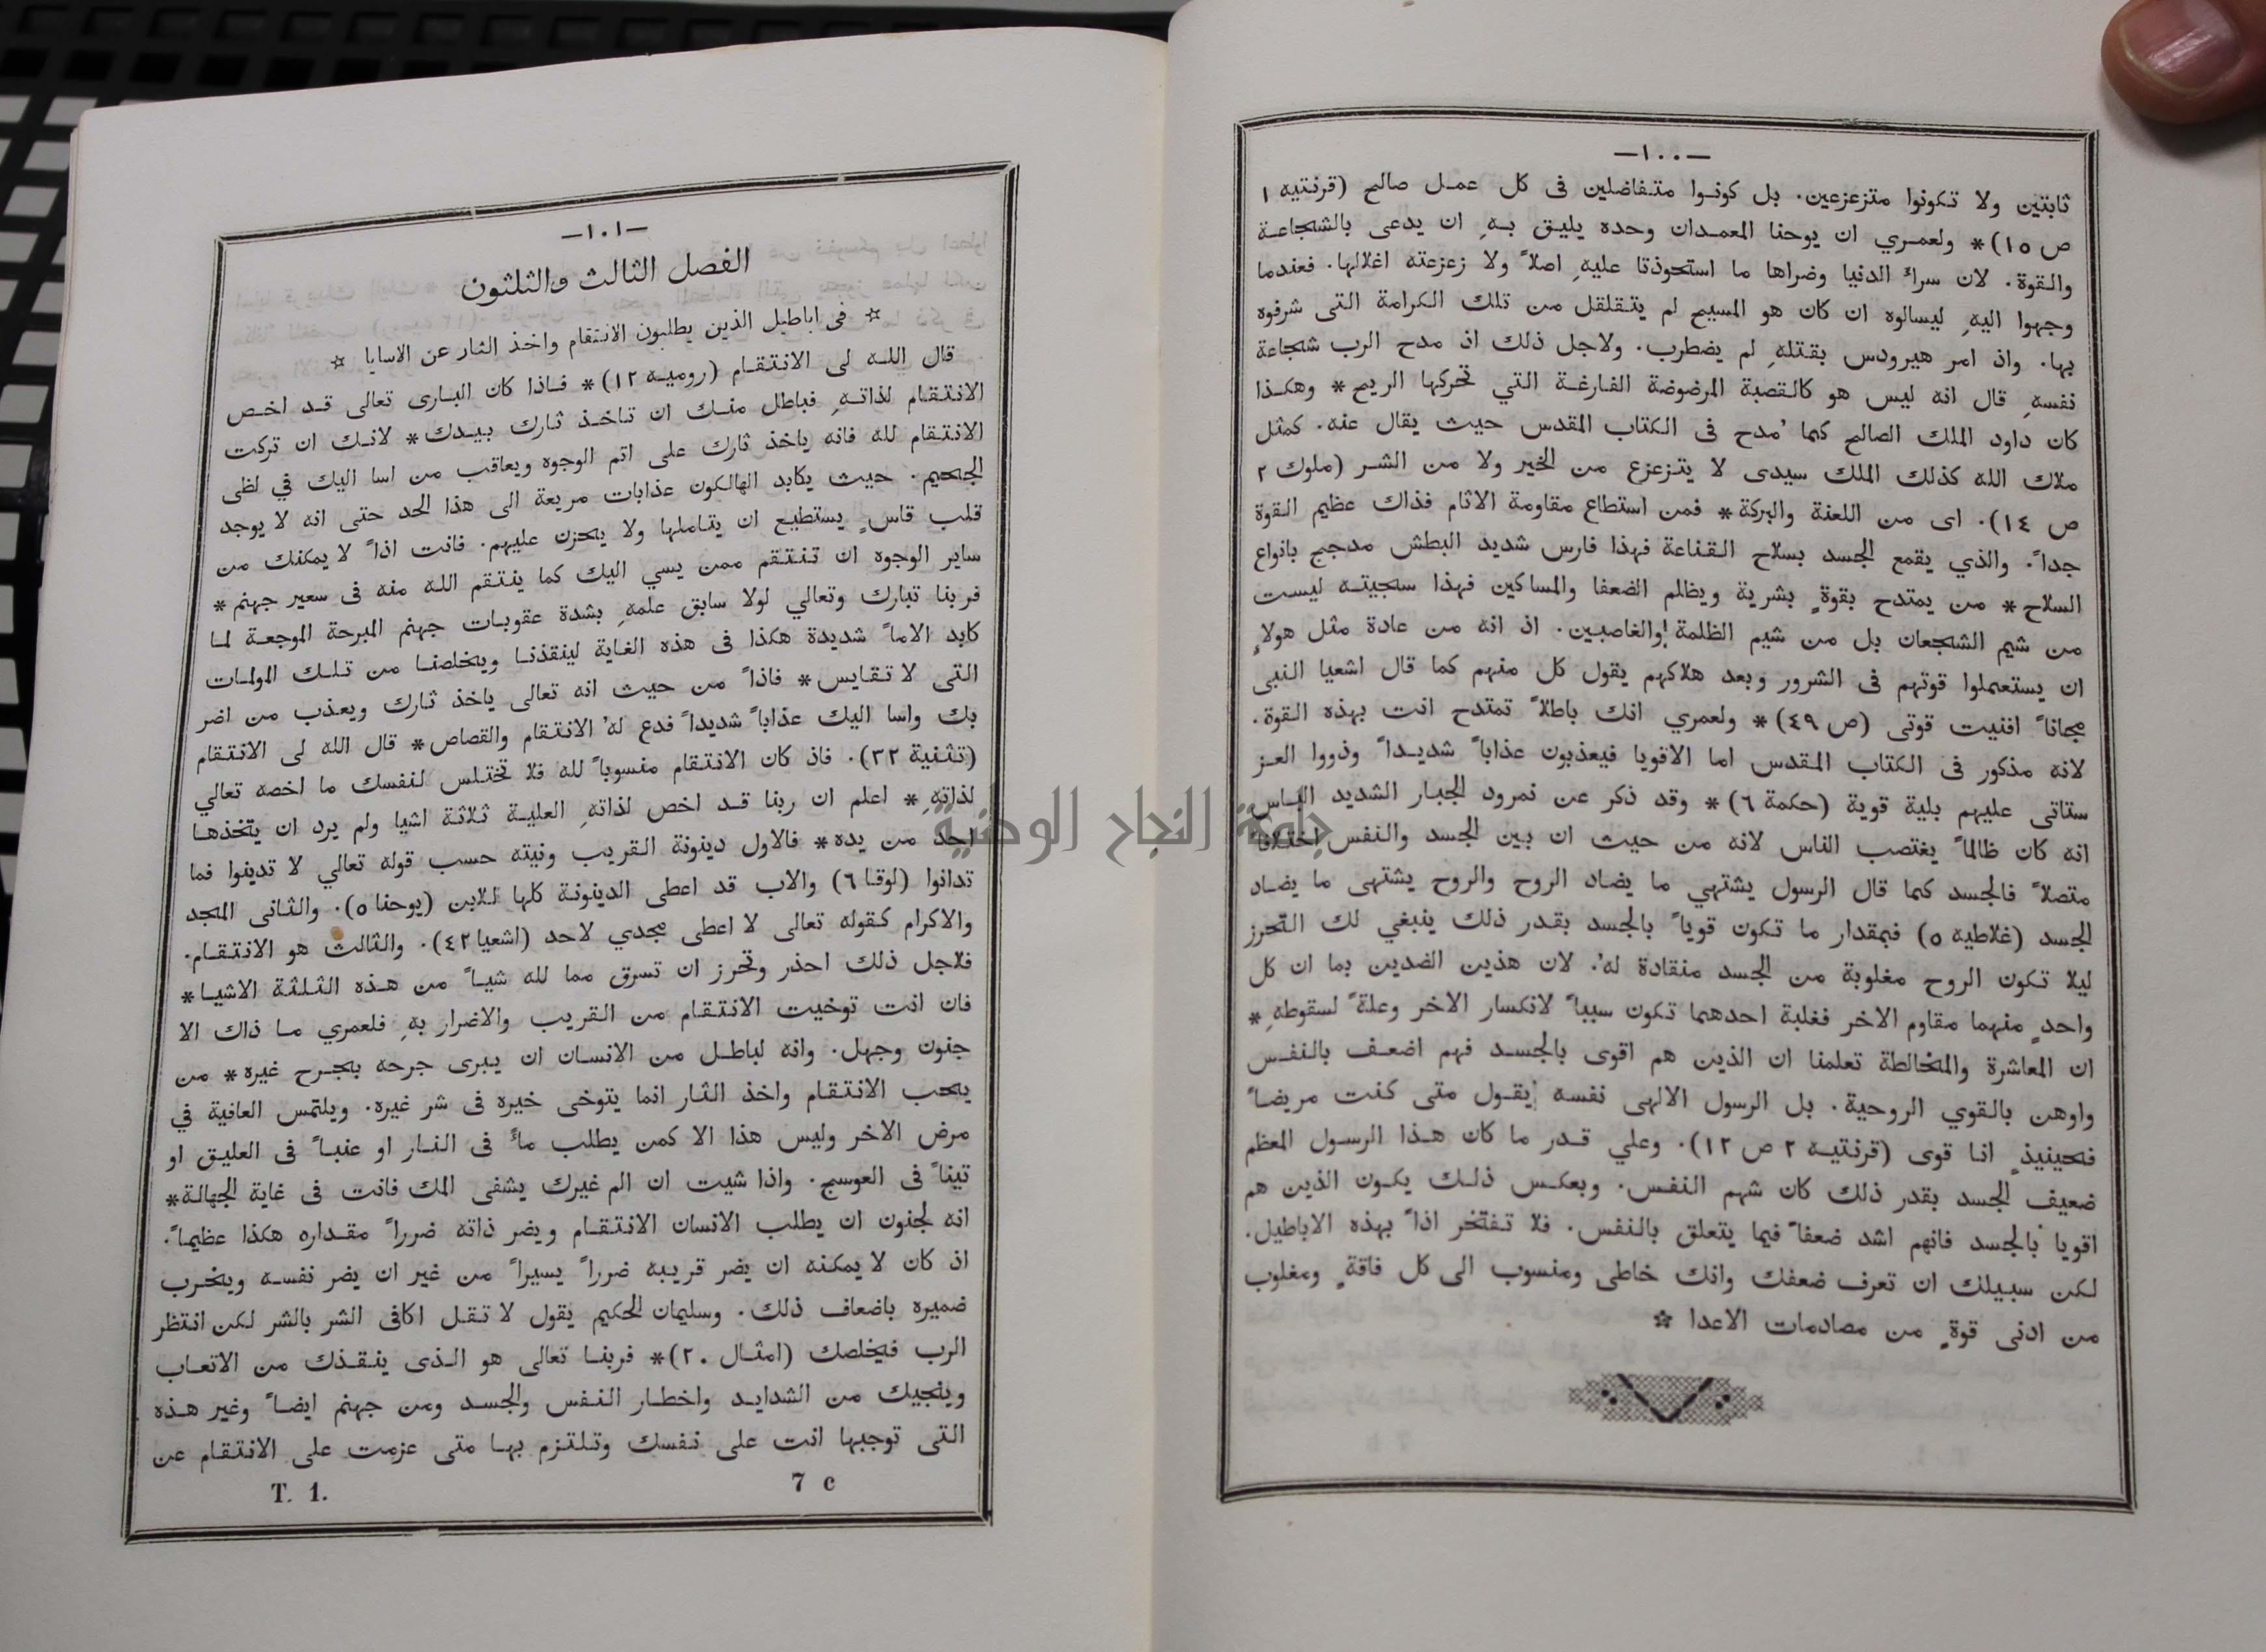 —١٠٠—
ثابتين ولا تكونوا متزعزعين. بل كونوا متفاضلين فى كل عمل صالح (قرنتيه ١
ص ١٥)* ولعمري ان يوحنا المعمدان وحده يليق بهِ ان يدعى بالشجاعة
والقوة. لان سراء الدنيا وضراها ما استحوذتا عليهِ اصلاً ولا زعزعته اغلالها. فعندما
وجهوا اليهِ ليسالوه ان كان هو المسيح لم يتقلقل من تلك الكرامة التى شرفوه
بها. واذ امر هيرودس بقتلهِ لم يضطرب. ولاجل ذلك اذ مدح الرب شجاعة
نفسهِ قال انه ليس هو كالقصبة المرضوضة الفارغة التي تحركها الريح* وهكذا
كان داود الملك الصالح كما مُدح فى الكتاب المقدس حيث يقال عنه. كمثل
ملاك الله كذلك الملك سيدى لا يتزعزع من الخير ولا من الشر (ملوك ٢
ص ١٤). اى من اللعنة والبركة* فمن استطاع مقاومة الاثام فذاك عظيم القوة
جداً. والذي يقمع الجسد بسلاح القناعة فهذا فارس شديد البطش مدجج بانواع
السلاح* من يمتدح بقوةٍ بشرية ويظلم الضعفا والمساكين فهذا سجيته ليست
من شيم الشجعان بل من شيم الظلمة والغاصبين. اذ انه من عادة مثل هولاءِ
ان يستعملوا قوتهم فى الشرور وبعد هلاكهم يقول كل منهم كما قال اشعيا النبى
مجاناً افنيت قوتى (ص ٤٩)* ولعمري انك باطلاً تمتدح انت بهذه القوة.
لانه مذكور فى الكتاب المقدس اما الاقويا فيعذبون عذاباً شديداً وذووا العز
ستاتى عليهم بلية قوية (حكمة ٦)* وقد ذكر عن نمرود الجبار الشديد الباس
انه كان ظالماً يغتصب الناس لانه من حيث ان بين الجسد والنفس اختلافاً
متصلاً فالجسد كما قال الرسول يشتهي ما يضاد الروح والروح يشتهى ما يضاد
الجسد (غلاطيه ٥) فبمقدار ما تكون قوياً بالجسد بقدر ذلك ينبغي لك التحرز
ليلا تكون الروح مغلوبة من الجسد منقادة لهُ. لان هذين الضدين بما ان كل
واحدٍ منهما مقاوم الاخر فغلبة احدهما تكون سبباً لانكسار الاخر وعلةً لسقوطهِ*
ان المعاشرة والمخالطة تعلمنا ان الذين هم اقوى بالجسد فهم اضعف بالنفس
واوهن بالقوي الروحية. بل الرسول الالهى نفسه يقول متى كنت مريضاً
فحينيذٍ انا قوى (قرنتيه ٢ ص ١٢). وعلي قدر ما كان هذا الرسول المعظم
ضعيف الجسد بقدر ذلك كان شهم النفس. وبعكس ذلك يكون الذين هم
اقويا بالجسد فانهم اشد ضعفاً فيما يتعلق بالنفس. فلا تفتخر اذاً بهذه الاباطيل.
لكن سبيلك ان تعرف ضعفك وانك خاطى ومنسوب الى كل فاقةٍ ومغلوب
من ادنى قوةٍ من مصادمات الاعدا ☆
—١٠١—
الفصل الثالث والثلثون
☆ فى اباطيل الذين يطلبون الانتقام واخذ الثار عن الاسايا ☆
قال الله لى الانتقام (روميه ١٢)* فاذا كان البارى تعالى قد اخص
الانتقام لذاتهِ فباطل منك ان تاخذ ثارك بيدك* لانك ان تركت
الانتقام لله فانه ياخذ ثارك على اتم الوجوه ويعاقب من اسا اليك في لظى
الجحيم. حيث يكابد الهالكون عذابات مريعة الى هذا الحد حتى انه لا يوجد
قلب قاسٍ يستطيع ان يتاملها ولا يحزن عليهم. فانت اذاً لا يمكنك من
ساير الوجوه ان تنتقم ممن يسي اليك كما ينتقم الله منه فى سعير جهنم*
فربنا تبارك وتعالي لولا سابق علمهِ بشدة عقوبات جهنم المبرحة الموجعة لما
كابد الاماً شديدة هكذا فى هذه الغاية لينقذنا ويخلصنا من تلك المولمات
التى لا تقايس* فاذاً من حيث انه تعالى ياخذ ثارك ويعذب من اضر
بك واسا اليك عذاباً شديداً فدع لهُ الانتقام والقصاص* قال الله لى الانتقام
(تثنية ٣٢). فاذ كان الانتقام منسوباً لله فلا تختلس لنفسك ما اخصه تعالي
لذاتهِ* اعلم ان ربنا قد اخص لذاتهِ العلية ثلاثة اشيا ولم يرد ان يتخذها
احد من يده* فالاول دينونة القريب ونيته حسب قوله تعالي لا تدينوا فما
تدانوا (لوقا ٦) والاب قد اعطى الدينونة كلها للابن (يوحنا ٥). والثانى المجد
والاكرام كقوله تعالى لا اعطى مجدي لاحد (اشعيا ٤٢). والثالث هو الانتقام.
فلاجل ذلك احذر وتحرز ان تسرق مما لله شياً من هذه الثلثة الاشيا*
فان انت توخيت الانتقام من القريب والاضرار بهِ فلعمري ما ذاك الا
جنون وجهل. وانه لباطل من الانسان ان يبرى جرحه بجرح غيره* من
يحب الانتقام واخذ الثار انما يتوخى خيره فى شر غيره. ويلتمس العافية في
مرض الاخر وليس هذا الا كمن يطلب ماءً فى النار او عنباً فى العليق او
تيناً فى العوسج. واذا شيت ان الم غيرك يشفى المك فانت فى غاية الجهالة*
انه لجنون ان يطلب الانسان الانتقام ويضر ذاته ضرراً مقداره هكذا عظيماً.
اذ كان لا يمكنه ان يضر قريبه ضرراً يسيراً من غير ان يضر نفسه ويخرب
ضميره باضعاف ذلك. وسليمان الحكيم يقول لا تقل اكافى الشر بالشر لكن انتظر
الرب فيخلصك (امثال ٢٠)* فربنا تعالى هو الذى ينقذك من الاتعاب
وينجيك من الشدايد واخطار النفس والجسد ومن جهنم ايضاً وغير هذه
التى توجبها انت على نفسك وتلتزم بها متى عزمت على الانتقام عن
T. 1. 7 c
جامعة النجاح الوطنية